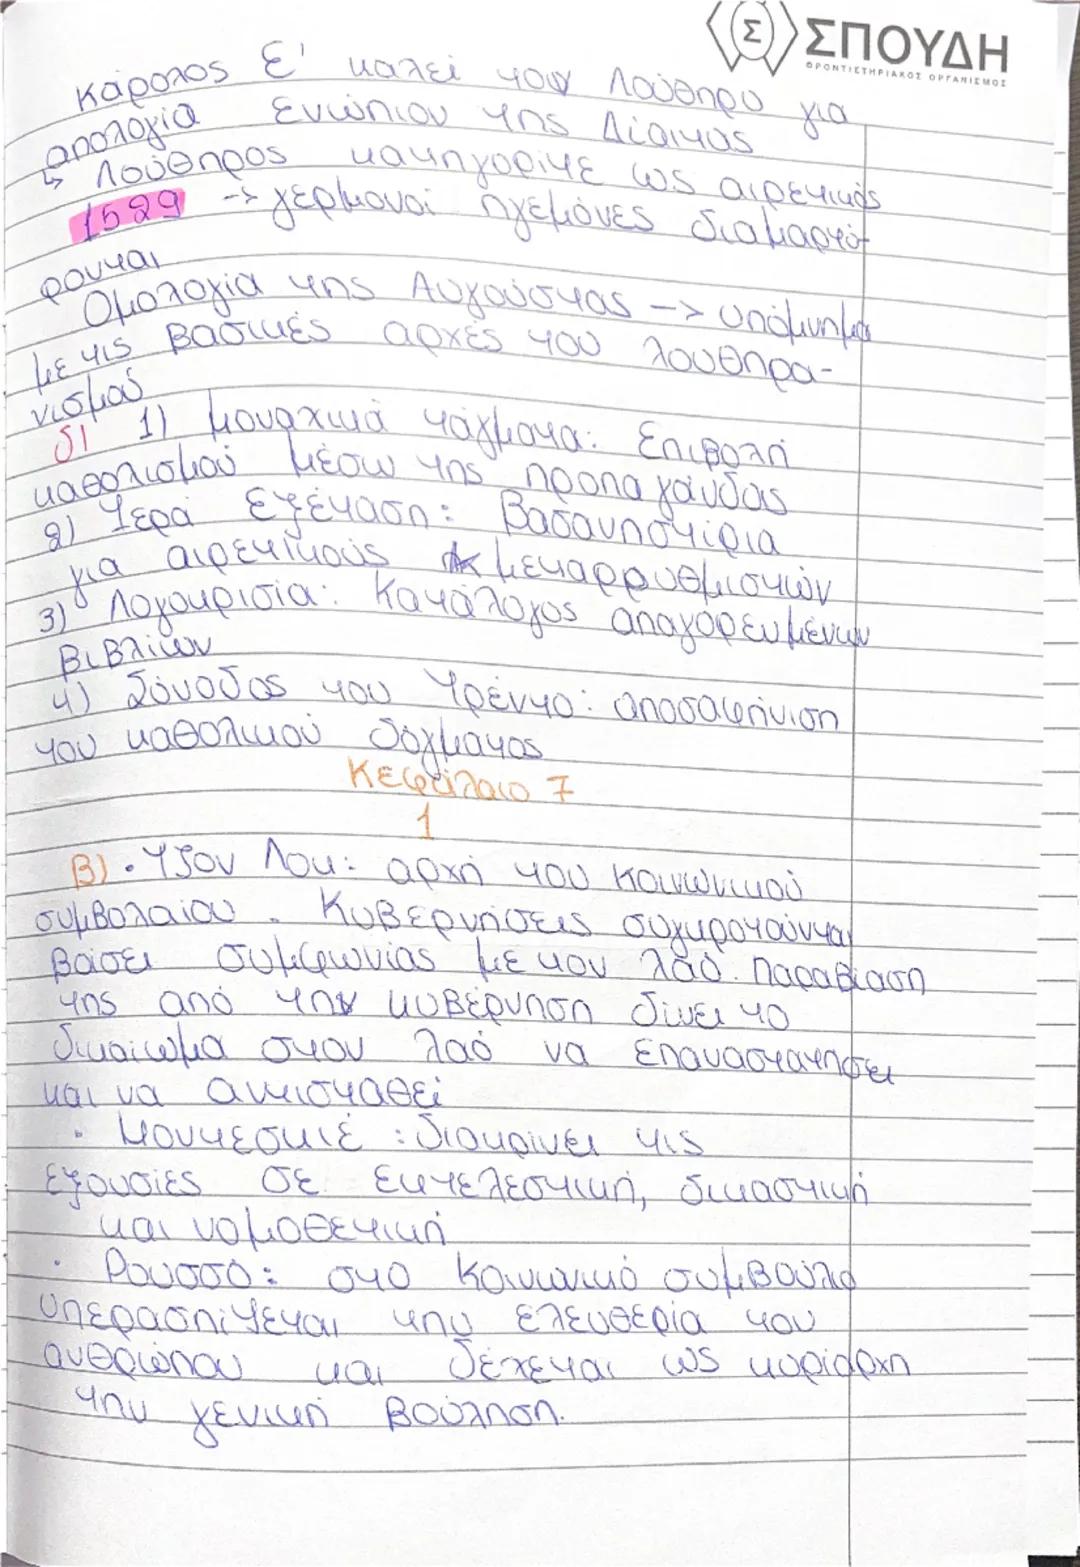 ΣΠΟΥΔΗ
ΦΡΟΝΤΙΣΤΗΡΙΑΚΟΣ ΟΡΓΑΝΙΣΜΟΣ
Κάρολος Ε' καλεί τον Λούθηρο για
απολογία ενώπιον της Δίαιτας
↳ Λούθηρος κατηγορίτε ως αιρετικός
1529 -> γερμανοί ηγεμόνες διαμαρτύ-
ρονται
Ομολογία της Αυγούστας -> υπόμνημα
με τις βασικές αρχές του λουθηρα-
νισμού
δ) 1) μοναχικά τάγματα: Επιβολή
καθολισμού μέσω της προπαγάνδας
2) Ιερά Εξέταση: Βασανηστίρια
για αιρετικούς & μεταρρυθμιστών
3) Λογοκρισία: Κατάλογος απαγορευμένων
βιβλίων
4) Σύνοδος του Τρέντο: αποσαφήνιση
του καθολικού δόγματος
Κεφάλαιο 7
1
Β) · Τζον Λοκ: αρχή του Κοινωνικού
συμβολαίου. Κυβερνήσεις συγκροτούνται
βάσει συμφωνίας με τον λαό. Παραβίαση
της από την κυβέρνηση δίνει το
δικαίωμα στον λαό να επαναστατήσει
και να αντισταθεί
· Μοντεσκιέ: διακρίνει τις
εξουσίες σε εκτελεστική, δικαστική
και νομοθετική
· Ρουσσό: στο Κοινωνικό συμβούλιο
υπερασπίζεται την ελευθερία του
ανθρώπου και δέχεται ως κυρίαρχη
την γενική βούληση.